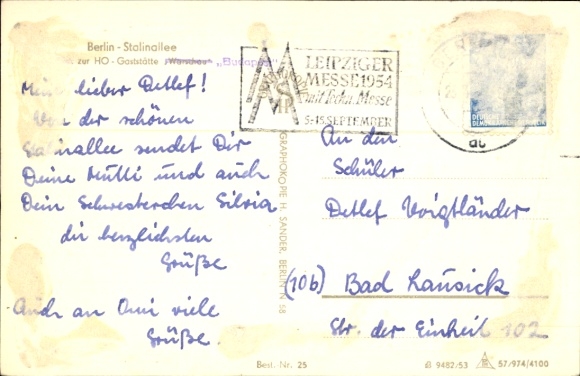 Berlin - Stalinallee
zur HO - Gaststätte „Warschau" „Budapest"
Mein lieber Detlef!
Von der schönen
Stalinallee sendet Dir
Deine Mutti und auch
Dein Schwesterchen Silvia
die herzlichsten
Grüße
Auch an Omi viele
Grüße.
LEIPZIGER
MESSE 1954
mit Techn. Messe
5.-15. SEPTEMBER
An den
Schüler
Detlef Voigtländer
(10b) Bad Lausick
Str. der Einheit 102
GRAPHOKOPIE H. SANDER, BERLIN N 58
Best. Nr. 25
B 9482/53
57/974/4100